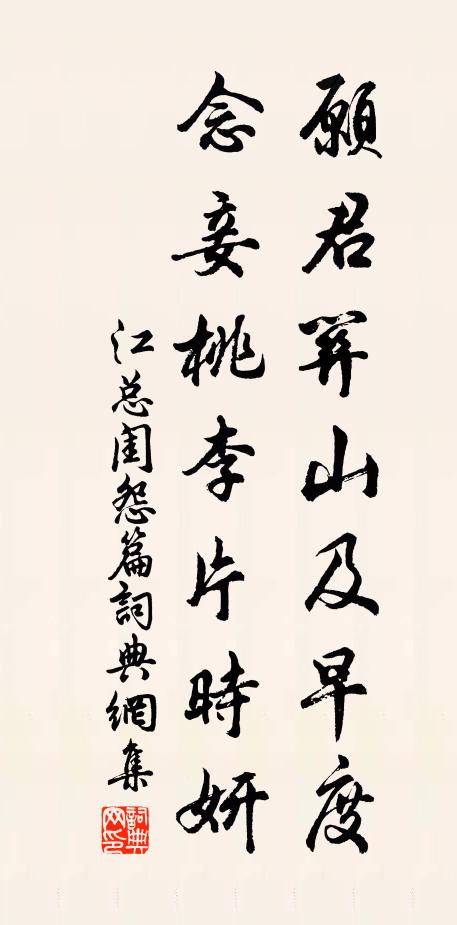 願君關山及早度
念妾桃李片時妍
江总闺怨篇詞典網集
詞典網印